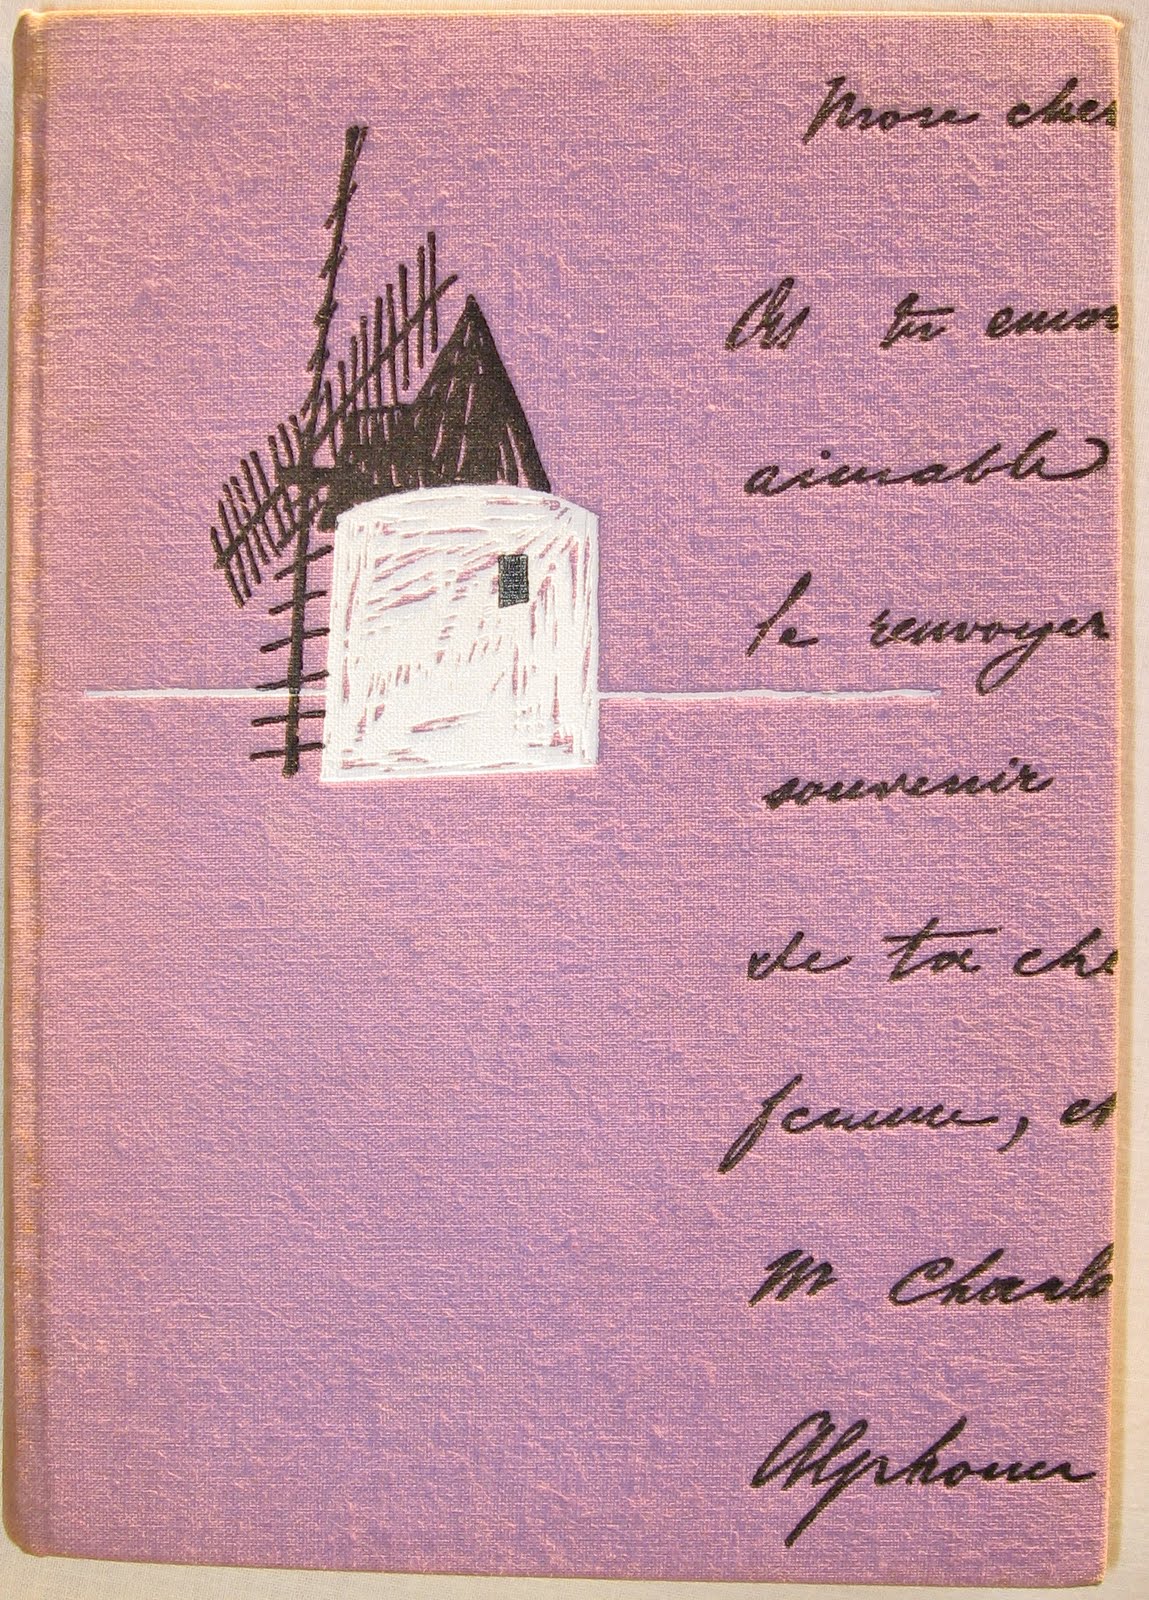 Mon cher
As tu encor
aimable
le renvoyer
souvenir
de ta che
femme, et
Mr Charle
Alphonse